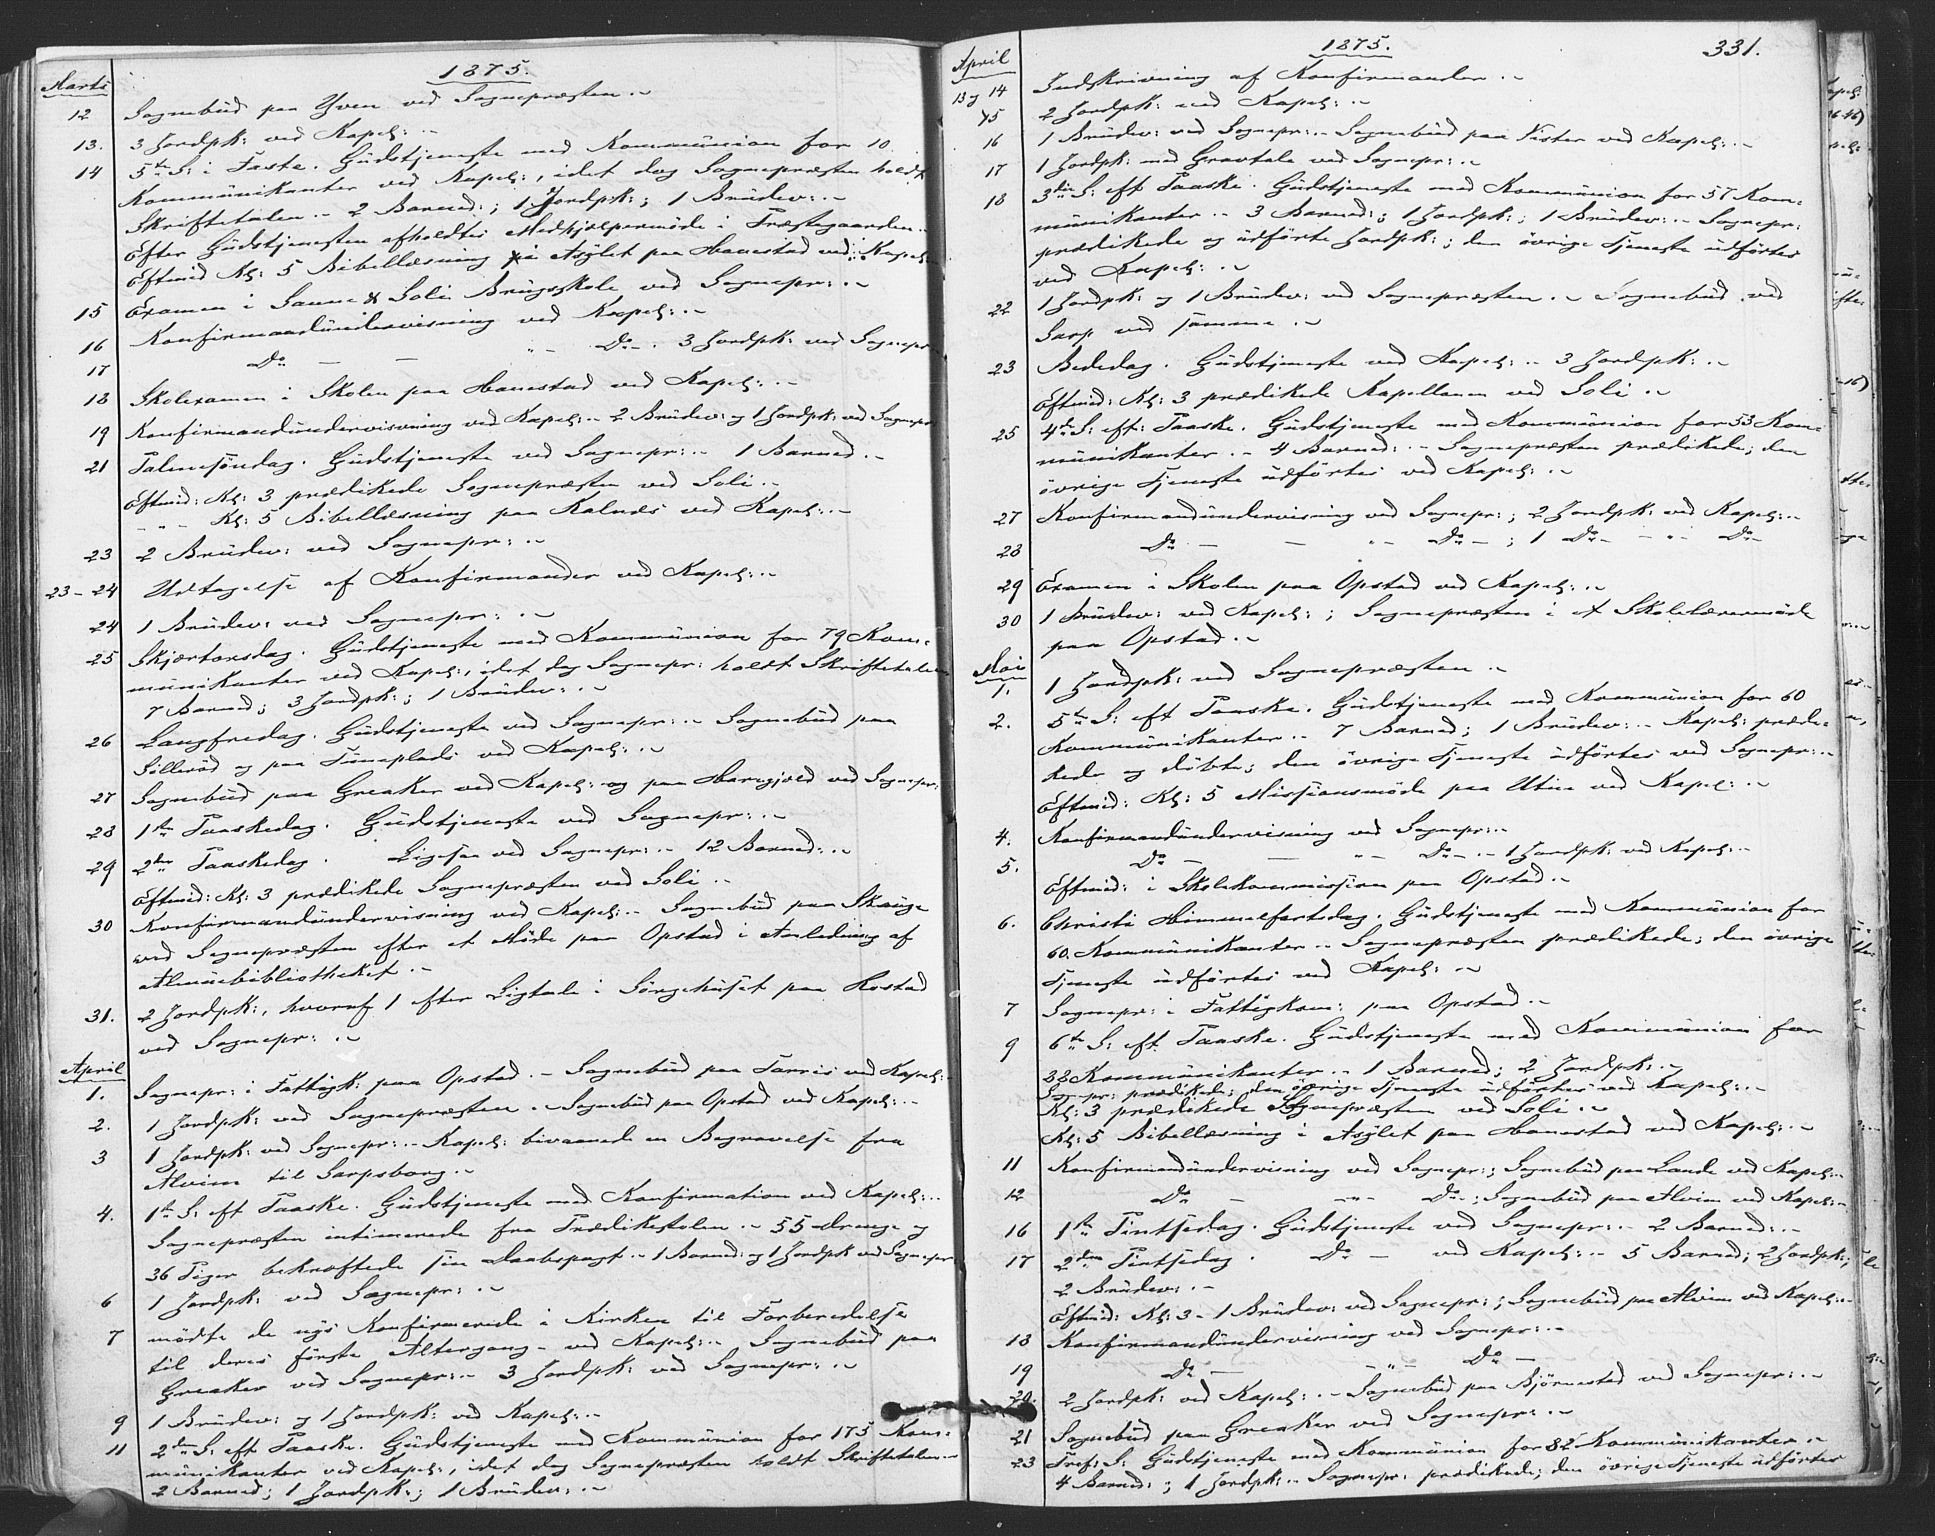 1875.
Marts
12 Sognebud paa Yven ved Sognepræsten.
13. 3 Jordpk: ved Kapel:
14 5te S: i Faste. Gudstjeneste med Kommunion for 10
Kommunikanter ved Kapel:, idet dog Sognepræsten holdt
Skriftetalen. 2 Barned:; 1 Jordpk:; 1 Brudev:
Efter Gudstjenesten afholdtes Medhjælpermöde i Præstegaarden.
Eftmid Kl: 5 Bibellæsning i Asylet paa Hanestad ved Kapel:
15 Examen i Sanne & Soli Brugsskole ved Sognepr:
16 Konfirmandundervisning ved Kapel:
17 Do — — " — Do — . 3 Jordpk: ved Sognepr:
18 Skolexamen i Skolen paa Hanestad ved Kapel:
19 Konfirmandundervisning ved Kapel: 2 Brudev: og 1 Jordpk: ved Sognepr
21 Palmesöndag. Gudstjeneste ved Sognepr: 1 Barned.
Eftmid: Kl: 3 prædikede Sognepræsten ved Soli.
— " — Kl: 5 Bibellæsning paa Kalnæs ved Kapel:
23 2 Brudev: ved Sognepr:
23-24 Udtagelse af Konfirmander ved Kapel:
24 1 Brudev: ved Sognepr:
25 Skjærtorsdag. Gudstjeneste med Kommunion for 79 Kom=
munikanter ved Kapel:, idet dog Sognepr: holdt Skriftetalen
7 Barned; 3 Jordpk:; 1 Brudev:
26 Langfredag. Gudstjeneste ved Sognepr: Sognebud paa
Sölleröd og paa Tömeplads ved Kapel:
27 Sognebud paa Greaker ved Kapel: og paa Haregjeld ved Sognepr:
28 1te Paaskedag. Gudstjeneste ved Sognepr:
29 2den Paaskedag. Ligesaa ved Sognepr: 12 Barned:
Eftmid: Kl: 3 prædikede Sognepræsten ved Soli
30 Konfirmandundervisning ved Kapel: Sognebud paa Skauge
ved Sognepræsten efter et Möde paa Opstad i Anledning af
Almuebibliotheket.
31. 2 Jordpk:, hvoraf 1 efter Ligtale i Sörgehuset paa Hostad
ved Sognepr:
April
1. Sognepr: i Fattigk: paa Opstad. Sognebud paa Tarris ved Kapel:
2. 1 Jordpk: ved Sognepræsten. Sognebud paa Opstad ved Kapel:
3 1 Jordpk: ved Sognepr: Kapel: bivaanede en Begravelse fra
Alvim til Sarpsborg.
4. 1te S: eft Paaske. Gudstjeneste med Konfirmation ved Kapel:
Sognepræsten intimerede fra Prædikestolen. 55 drenge og
36 Piger bekræftede sin Daabspagt. 1 Barned: og 1 Jordpk ved Sognepr:
6 1 Jordpk: ved Sognepr:
7 mödte de nys Konfirmerede i Kirken til Forberedelse
til deres förste Altergang ved Kapel: Sognebud paa
Greaker ved Sognepr: 3 Jordpk: ved Sognepr:
9 1 Brudev: og 1 Jordpk: ved Kapel:
11 2den S: eft Paaske. Gudstjeneste med Kommunion for 175 Kom=
munikanter ved Kapel:, idet dog Sognepræsten holdt Skriftetalen
2 Barned; 1 Jordpk:; 1 Brudev:
1875. 331.
April
13 og 14 Indskrivning af Konfirmander.
15 2 Jordpk: ved Kapel:
16 1 Brudev: ved Sognepr: Sognebud paa Vister ved Kapel:
17 1 Jordpk: med Gravtale ved Sognepr:
18 3die S: eft Paaske. Gudstjeneste med Kommunion for 57 Kom=
munikanter. 3 Barned:; 1 Jordpk:; 1 Brudev: Sognepr:
prædikede og udförte Jordpk:; den övrige Tjeneste udförtes
ved Kapel:
22 1 Jordpk: og 1 Brudev: ved Sognepræsten. Sognebud ved
Sarp ved samme.
23 Bededag. Gudstjeneste ved Kapel: 3 Jordpk:
Eftmid: Kl: 3 prædikede Kapellanen ved Soli.
25 4de S: eft: Paaske. Gudstjeneste med Kommunion for 53 Kom=
munikanter. 4 Barned: Sognepræsten prædikede; den
övrige Tjeneste udförtes ved Kapel:
27 Konfirmandundervisning ved Sognepr:; 2 Jordpk: ved Kapel:
28 Do — — " — Do — ; 1 Do — " — Do —
29 Examen i Skolen paa Opstad ved Kapel:
30 1 Brudev: ved Kapel:; Sognepræsten i et Skolelærermöde
paa Opstad.
Mai
1. 1 Jordpk: ved Sognepræsten.
2. 5te S: eft Paaske. Gudstjeneste med Kommunion for 60
Kommunikanter. 7 Barned; 1 Brudev: Kapel: prædi=
kede og döbte; den övrige Tjeneste udförtes ved Sognepr:
Eftmid: Kl: 5 Missionsmöde paa Utne ved Kapel:
4. Konfirmandundervisning ved Sognepr:
5. Do — — " — Do — 1 Jordpk: ved Kapel:
Eftmid: i Skolekommission paa Opstad.
6. Christi Himmelfartsdag. Gudstjeneste med Kommunion for
60. Kommunikanter. Sognepræsten prædikede; den övrige
Tjeneste udförtes ved Kapel:
7 Sognepr: i Fattigkom: paa Opstad.
9 6te S: eft Paaske. Gudstjeneste med Kommunion for
32 Kommunikanter. 1 Barned; 2 Jordpk:
Sognepr: prædikede; den övrige Tjeneste udförtes ved Kapel:
Kl: 3 prædikede Sognepræsten ved Soli.
Kl: 5 Bibellæsning i Asylet paa Hanestad ved Kapel:
11 Konfirmandundervisning ved Sognepr:; Sognebud paa Lande ved Kapel:
12 Do — — " — Do —; Sognebud paa Alvim ved Kapel:
16 1ste Pintsedag. Gudstjeneste ved Sognepr: 2 Barned:
17 2den Pintsedag. Do — ved Kapel: 5 Barned; 2 Jordpk:;
2 Brudev:
Eftmid: Kl: 3 1 Brudev: ved Sognepr:; Sognebud paa Alvim ved Kapel:
18 Konfirmandundervisning ved Sognepr:
19 Do — — " — Do —
20. 2 Jordpk: ved Kapel: Sognebud paa Bjørnestad ved Sognepr:
21 Sognebud paa Greaker ved Sognepr:
23 Tref: S: Gudstjeneste med Kommunion for 82 Kommunikanter.
4 Barned:; 1 Jordpk: Sognepr: prædikede; den övrige Tjeneste udförtes